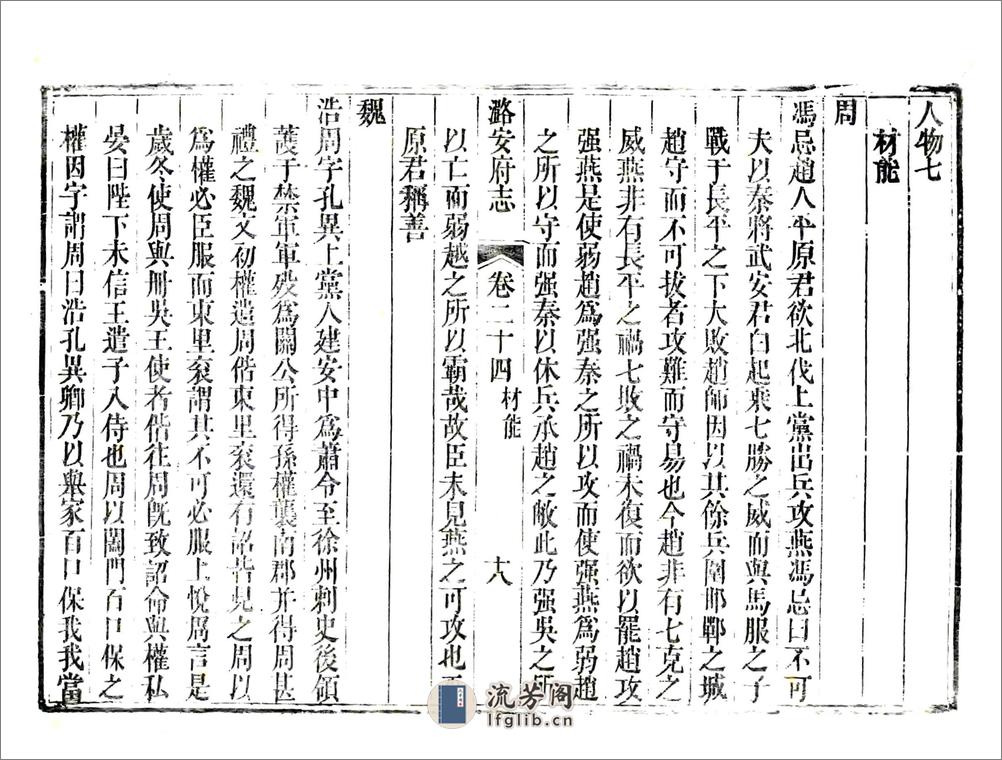 人物七
材能
周
馮忌趙人平原君欲北伐上黨出兵攻燕馮忌曰不可
夫以秦將武安君白起乘七勝之威而與馬服之子
戰于長平之下大敗趙師因以其餘兵圍邯鄲之城
趙守而不可拔者攻難而守易也今趙非有七克之
威燕非有長平之禍七敗之禍未復而欲以罷趙攻
强燕是使弱趙爲强秦之所以攻而使强燕爲弱趙
之所以守而强秦以休兵承趙之敝此乃强吳之所
潞安府志
卷二十四
材能
十八
以亡而弱越之所以霸哉故臣未見燕之可攻也平
原君稱善
魏
浩周字孔異上黨人建安中爲蕭令至徐州剌史後領
護于禁軍軍歿爲關公所得孫權襲南郡并得周甚
禮之魏文初權遣周偕東里袞還有詔皆見之周以
爲權必臣服而東里袞謂其不可必服上悅周言是
歲冬使周與册吳王使者偕往周旣致詔命與權私
宴曰陛下未信王遣子入侍也周以闔門百口保之
權因字謂周曰浩孔異卿乃以舉家百口保我我當
流芳阁
lfglib.cn